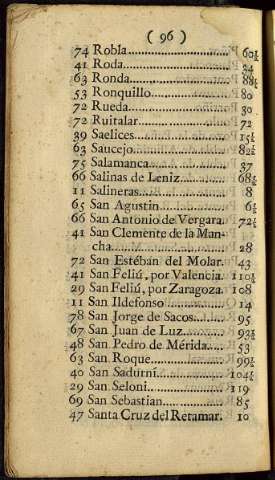 ( 96 )
74 Robla............................ 60½
41 Roda............................ 34
63 Ronda.......................... 88½
53 Ronquillo...................... 80
72 Rueda........................... 30
72 Ruitalar........................ 72
39 Saelices........................ 15½
63 Saucejo........................ 82½
75 Salamanca.................... 37
66 Salinas de Leniz............ 68½
11 Salineras...................... 8
65 San Agustin.................. 6½
66 San Antonio de Vergara. 72½
41 San Clemente de la Man-
cha............................. 28
72 San Estéban del Molar. 43
41 San Feliú, por Valencia. 110½
29 San Feliú, por Zaragoza. 108
11 San Ildefonso............... 14
78 San Jorge de Sacos....... 95
67 San Juan de Luz.......... 93½
48 San Pedro de Mérida.... 53
63 San Roque.................... 99½
40 San Sadurní.................. 104½
29 San Seloni.................... 119
69 San Sebastian............... 85
47 Santa Cruz del Retamar. 10